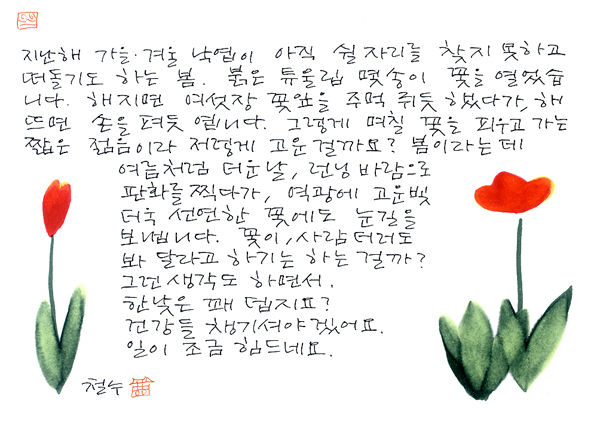 지난해 가을·겨울 낙엽이 아직 쉴자리를 찾지 못하고
떠돌기도 하는 봄. 붉은 튜울립 몇송이 꽃을 열었습
니다. 해지면 여섯장 꽃잎을 주먹 쥐듯 했다가, 해
뜨면 손을 펴듯 엽니다. 그렇게 며칠 꽃을 피우고 가는
짧은 젊음이라 저렇게 고운걸까요? 봄이라는데
여름처럼 더운날, 런닝바람으로
판화를 찍다가, 역광에 고운빛
더욱 선연한 꽃에도 눈길을
보냅니다. 꽃이, 사람더러도
봐 달라고 하기는 하는 걸까?
그런 생각도 하면서.
한낮은 꽤 덥지요?
건강들 챙기셔야겠어요.
일이 조금 힘드네요.
철수